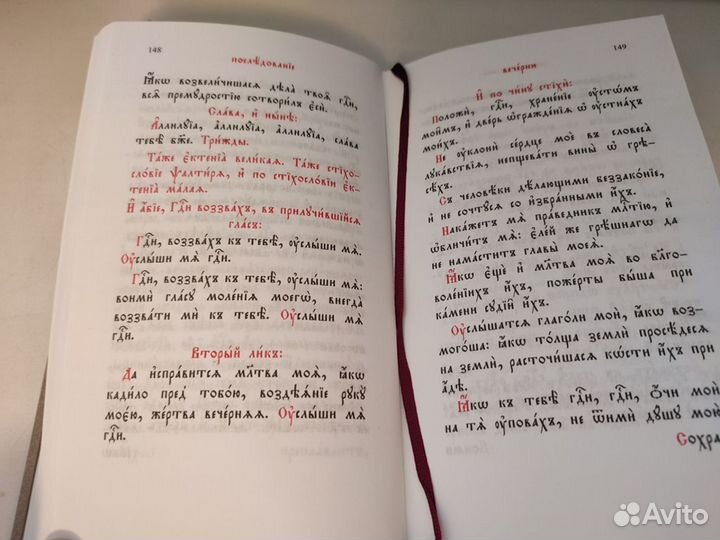 148
послѣ́дованїе
Ꙗ҆́кѡ возвели́чишасѧ дѣла̀ твоѧ̑ гдⷭ҇и,
всѧ̑ премꙋ́дростїю сотвори́лъ є҆сѝ.
Сла́ва, и҆ ны́нѣ:
А҆ллилꙋ́їа, а҆ллилꙋ́їа, а҆ллилꙋ́їа, сла́ва
тебѣ̀ бж҃е. Три́жды.
Та́же є҆ктенїа̀ вели́каѧ. Та́же стїхо-
сло́вїе ѱалти́рѧ, и҆ по стїхосло́вїи є҆к-
тенїа̀ ма́лаѧ.
И҆ а҆́бїе, Гдⷭ҇и воззва́хъ, въ прилꙋчи́вшїйсѧ
гла́съ:
Гдⷭ҇и, воззва́хъ къ тебѣ̀, ᲂу҆слы́ши мѧ̀.
Оу҆слы́ши мѧ̀ гдⷭ҇и.
Гдⷭ҇и, воззва́хъ къ тебѣ̀, ᲂу҆слы́ши мѧ̀:
вонмѝ гла́сꙋ моле́нїѧ моегѡ̀, внегда̀
воззва́ти мѝ къ тебѣ̀. Оу҆слы́ши мѧ̀
гдⷭ҇и.
Вторы́й ли́къ:
Да и҆спра́витсѧ мл҃тва моѧ̀, ꙗ҆́кѡ
кади́ло пред̾ тобо́ю, воздѣѧ́нїе рꙋкꙋ̀
моє́ю, же́ртва вече́рнѧѧ. Оу҆слы́ши мѧ̀
гдⷭ҇и.
149
вече́рни
И҆ по чи́нꙋ стїхѝ:
Положѝ, гдⷭ҇и, хране́нїе ᲂу҆стѡ́мъ
мои̑мъ, и҆ две́рь ѡ҆гражде́нїѧ ѡ҆ ᲂу҆стна́хъ
мои́хъ.
Не ᲂу҆клонѝ се́рдце моѐ въ словеса̀
лꙋка́вствїѧ, непщева́ти вины̑ ѡ҆ грѣ-
сѣ́хъ.
Съ человѣ́ки дѣ́лающими беззако́нїе,
и҆ не сочтꙋ́сѧ со и҆збра́нными и҆́хъ.
Нака́жетъ мѧ̀ пра́ведникъ млⷭ҇тїю, и҆
ѡ҆бличи́тъ мѧ̀: є҆ле́й же грѣ́шнагѡ
да не нама́ститъ главы̀ моеѧ̀.
Ꙗ҆́кѡ є҆щѐ и҆ мл҃тва моѧ̀ во бл҃го-
воле́нїихъ и҆́хъ, поже́рты бы́ша при
ка́мени сꙋдїи̑ и҆́хъ.
Оу҆слы́шатсѧ глаго́ли моѝ, ꙗ҆́кѡ воз-
мого́ша: ꙗ҆́кѡ то́лща землѝ просѣ́десѧ
на землѝ, расточи́шасѧ кѡ́сти и҆́хъ при
а҆́дѣ.
Ꙗ҆́кѡ къ тебѣ̀ гдⷭ҇и, гдⷭ҇и, ѻ҆́чи моѝ,
на тѧ̀ ᲂу҆пова́хъ, не ѿимѝ дꙋ́шꙋ мою̀.
Сохра-
Avito